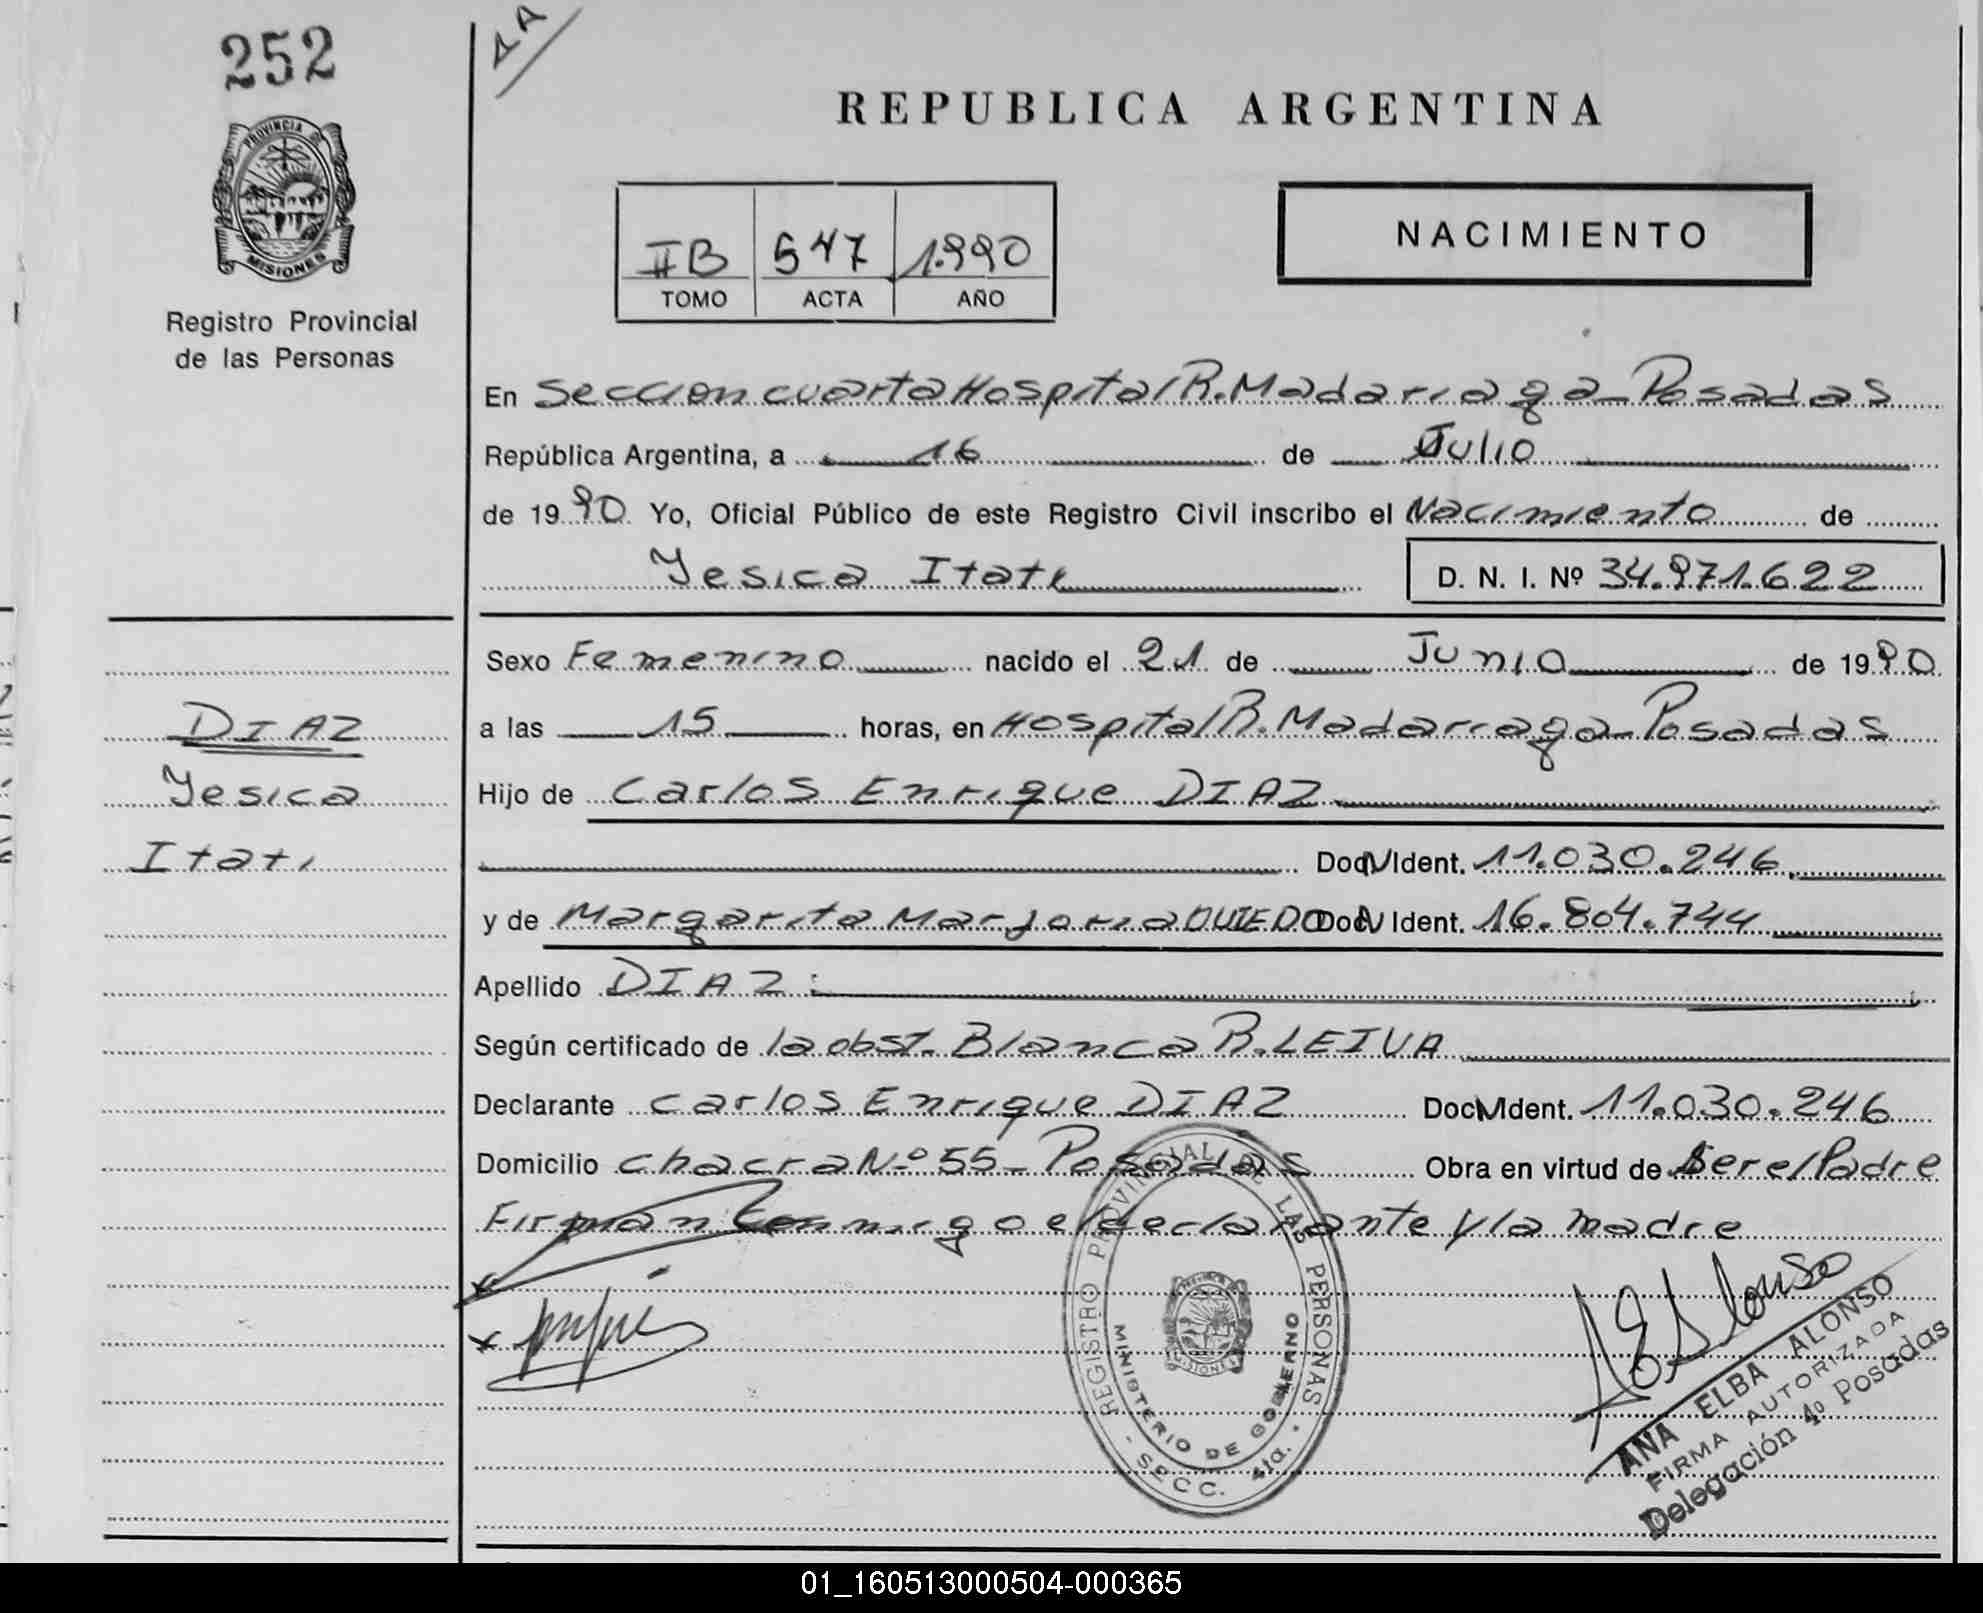 252
1A
PROVINCIA
MISIONES
Registro Provincial
de las Personas
REPUBLICA ARGENTINA
IIB 547 1.990
TOMO ACTA AÑO
NACIMIENTO
En Seccion cuarta Hospital R. Madariaga - Posadas
República Argentina, a 16 de Julio
de 1990 Yo, Oficial Público de este Registro Civil inscribo el Nacimiento de
Yesica Itati D. N. I. Nº 34.971.622
Sexo Femenino nacido el 21 de Junio de 1990
DIAZ
Yesica
Itati
a las 15 horas, en Hospital R. Madariaga - Posadas
Hijo de Carlos Enrique DIAZ
Doc. N Ident. 11.030.246
y de Margarita Marjoria OVIEDO Doc. N Ident. 16.804.744
Apellido DIAZ
Según certificado de la obst. Blanca R. LEIVA
Declarante Carlos Enrique DIAZ Doc. N Ident. 11.030.246
Domicilio chacra Nº 55 - Posadas Obra en virtud de Ser el Padre
Firman conmigo el declarante y la madre
REGISTRO PROVINCIAL DE LAS PERSONAS
MINISTERIO DE GOBIERNO
MISIONES
- SECC. 4ta. -
AEAlonso
ANA ELBA ALONSO
FIRMA AUTORIZADA
Delegación 4º Posadas
01_160513000504-000365